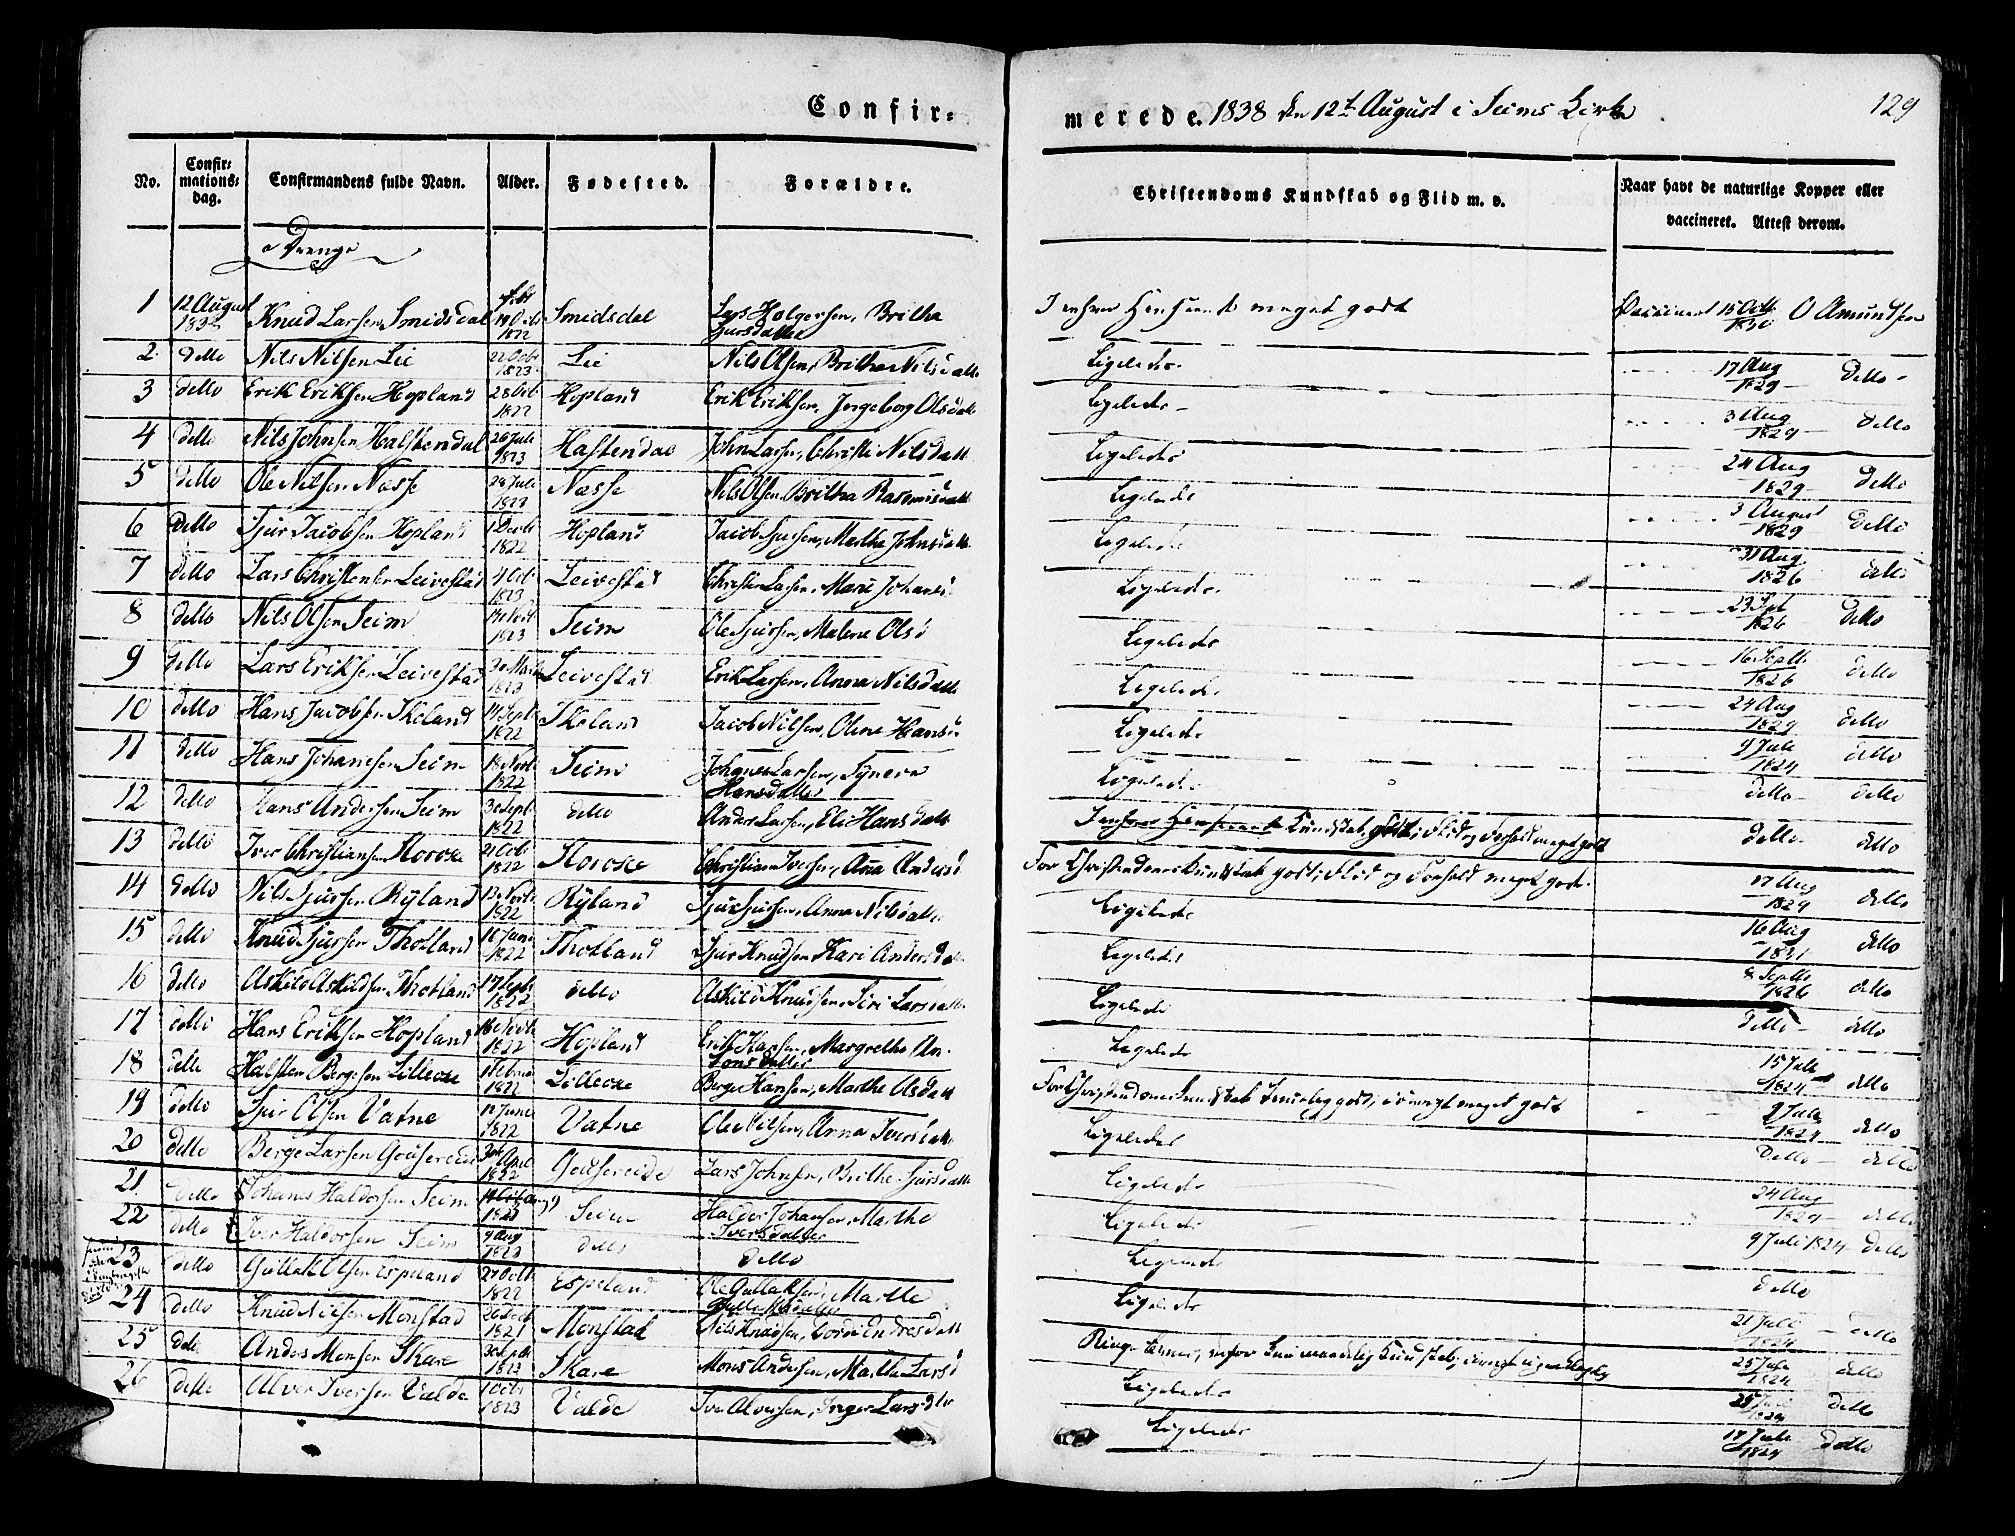 Confir-
merede. 1838 den 12t August i Seims Kirke
129
No.
Confir-
mations-
dag.
Confirmandens fulde Navn.
Alder.
Fødested.
Forældre.
Christendoms Kundskab og Flid m. v.
Naar havt de naturlige Kopper eller
vaccineret. Attest derom.
Drenge
1 12 August 1838 Knud Larsen Smidsdal 1822 Smidsdal Lars Holgersen, Britha Sjursdatter meget godt Vaccineret 15 Octb 1830 O Amundsen
2 detto Nils Nilsen Lie 22 Octb 1823 Lie Nils Olsen, Britha Nilsdatt Ligeledes 17 Aug 1829 detto
3 detto Erik Eriksen Hopland 28 Oct 1822 Hopland Erik Eriksen, Ingeborg Olsdatt Ligeledes 3 Aug 1829 detto
4 detto Nils Johnsen Halstendal 26 Juli 1823 Hastendal John Larsen, Christi Nilsdatt Ligeledes 24 Aug 1829 detto
5 detto Ole Nilsen Næsse 28 Juli 1823 Næsse Nils Olsen, Britha Rasmusdatt Ligelede 3 August 1829 detto
6 detto Sjur Jacobsen Hopland 1 Decb 1822 Hopland Jacob Sjursen, Marthe Johnsdatt Ligelede 21 Aug 1826 detto
7 detto Lars Christensen Leivestad 4 Oct 1823 Leivestad Christen Larsen, Marie Johans Ligeledes 23 Spt 1826 detto
8 detto Nils Olsen Seim 1823 Seim Ole Sjursen, Malene Olsd Ligeledes 16 Septb 1826 detto
9 detto Lars Eriksen Leivestad 1823 Leivestad Erik Larsen, Anna Nilsdatt Ligelede 24 Aug 1829 detto
10 detto Hans Jacobsen Skeland 14 Septb 1822 Skeland Jacob Nilsen, Olene Hansd Ligelede 9 Juli 1824 detto
11 detto Hans Johanesen Seim 18 Novb 1822 Seim Johanes Larsen, Synera Hansdatter Ligelede detto detto
12 detto Hans Andersen Seim 30 Septb 1822 detto Anders Larsen, Eli Hansdatt Kundskab godt, Flid og Forhold meget godt detto detto
13 detto Iver Christiansen Korose 21 Octb 1822 Korose Christian Iversen, Ana Andersd For Christendoms Kundskab godt, Flid og Forhold meget godt. 17 Aug 1829 detto
14 detto Nils Sjursen Ryland 13 Novb 1822 Ryland Sjur Sjursen, Anna Nilsdatter Ligelede 16 Aug 1831 detto
15 detto Knud Sjursen Thotland 16 Juni 1822 Thotland Sjur Knudsen Kari Andersdatt Ligeledes 8 Septb 1826 detto
16 detto Askild Askildsen Thotland 17 Septb 1822 detto Askild Knudsen, Siri Larsdatt Ligelede detto detto
17 detto Hans Eriksen Hopland 1822 Hopland Erik Hansen, Margrethe Ligelede 15 Juli 1824 detto
18 detto Halsten Bergesen Lilleose 1822 Lilleose Berge Hansen, Marthe Asdatt For Christendoms Kundskab godt, øvrigt meget godt 9 Juli 1824 detto
19 detto Sjur Olsen Vatne 12 Juni 1822 Vatne Ole Nilsen, Anna Iversdatt Ligeledes detto detto
20 detto Berge Larsen Gousereide April 1822 Gousereide Lars Johnsen, Brithe Sjursdatt Ligelede 24 Aug 1829 detto
21 detto Johanes Haldorsen Seim Seim Haldor Johansen, Marthe Iversdatter Ligelede 9 Juli 1824 detto
22 detto Iver Haldorsen Seim 9 Aug 1823 detto detto Ligelede detto
23 detto Gullak Olsen Espeland 27 Octb 1822 Espeland Ole Gullaksen, Marthe Gullaksdatter Ligelede 21 Juli 1824 detto
24 detto Knud Nilsen Monstad 1821 Monstad Nils Knudsen, Endresdatt 25 Juli 1824 detto
25 detto Anders Monsen Skare 1823 Skare Mons Andersen, Martha Larsd Ligeledes 25 Juli 1824 detto
26 detto Alver Iversen Valde 1 Octb 1823 Valde Iver Alversen, Inger Larsdtr Ligelede 17 Juli 1824 detto